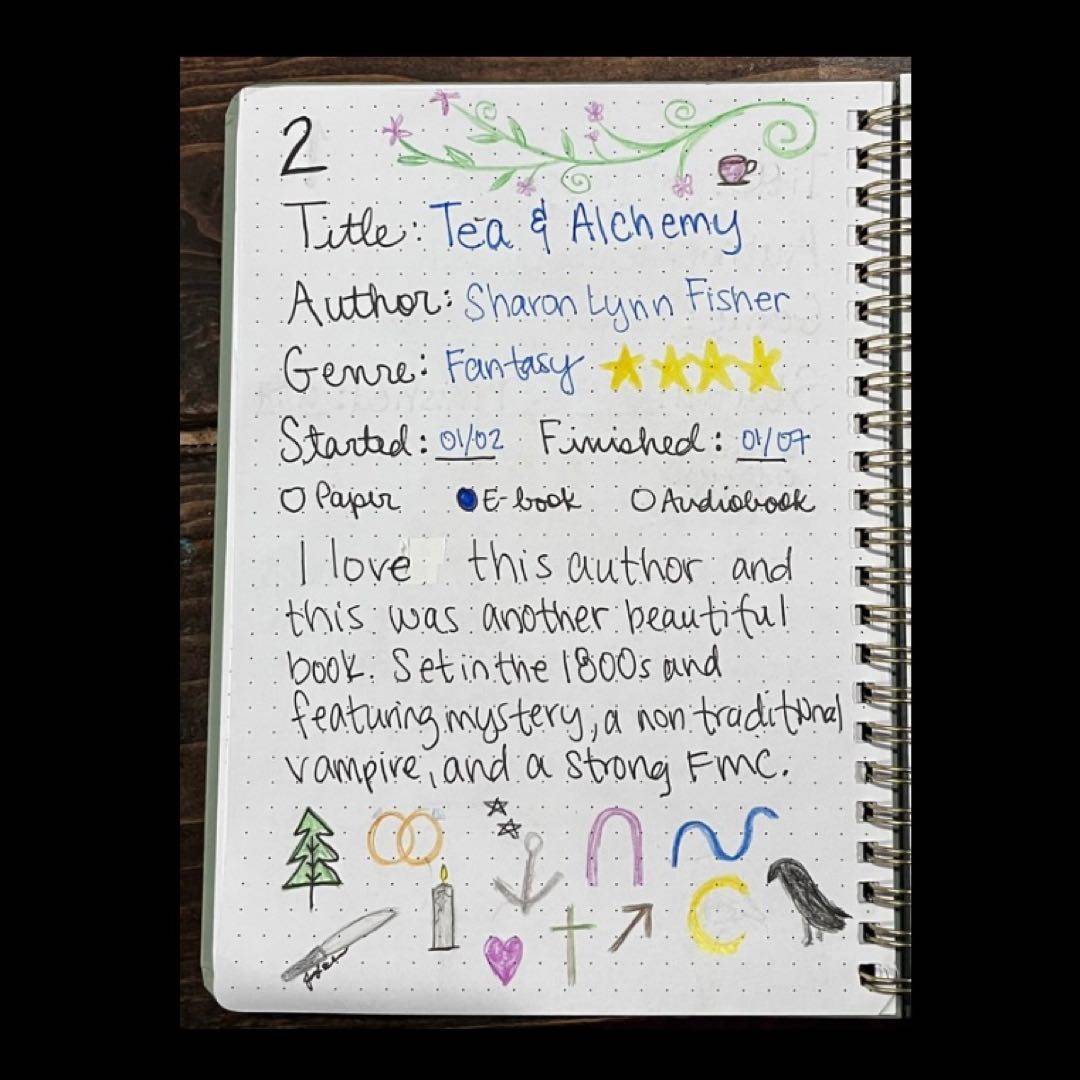 2
Title: Tea & Alchemy
Author: Sharon Lynn Fisher
Genre: Fantasy
Started: 01/02 Finished: 01/07
Paper E-book Audiobook
I love this author and
this was another beautiful
book. Set in the 1800s and
featuring mystery, a non traditional
vampire, and a strong FMC.